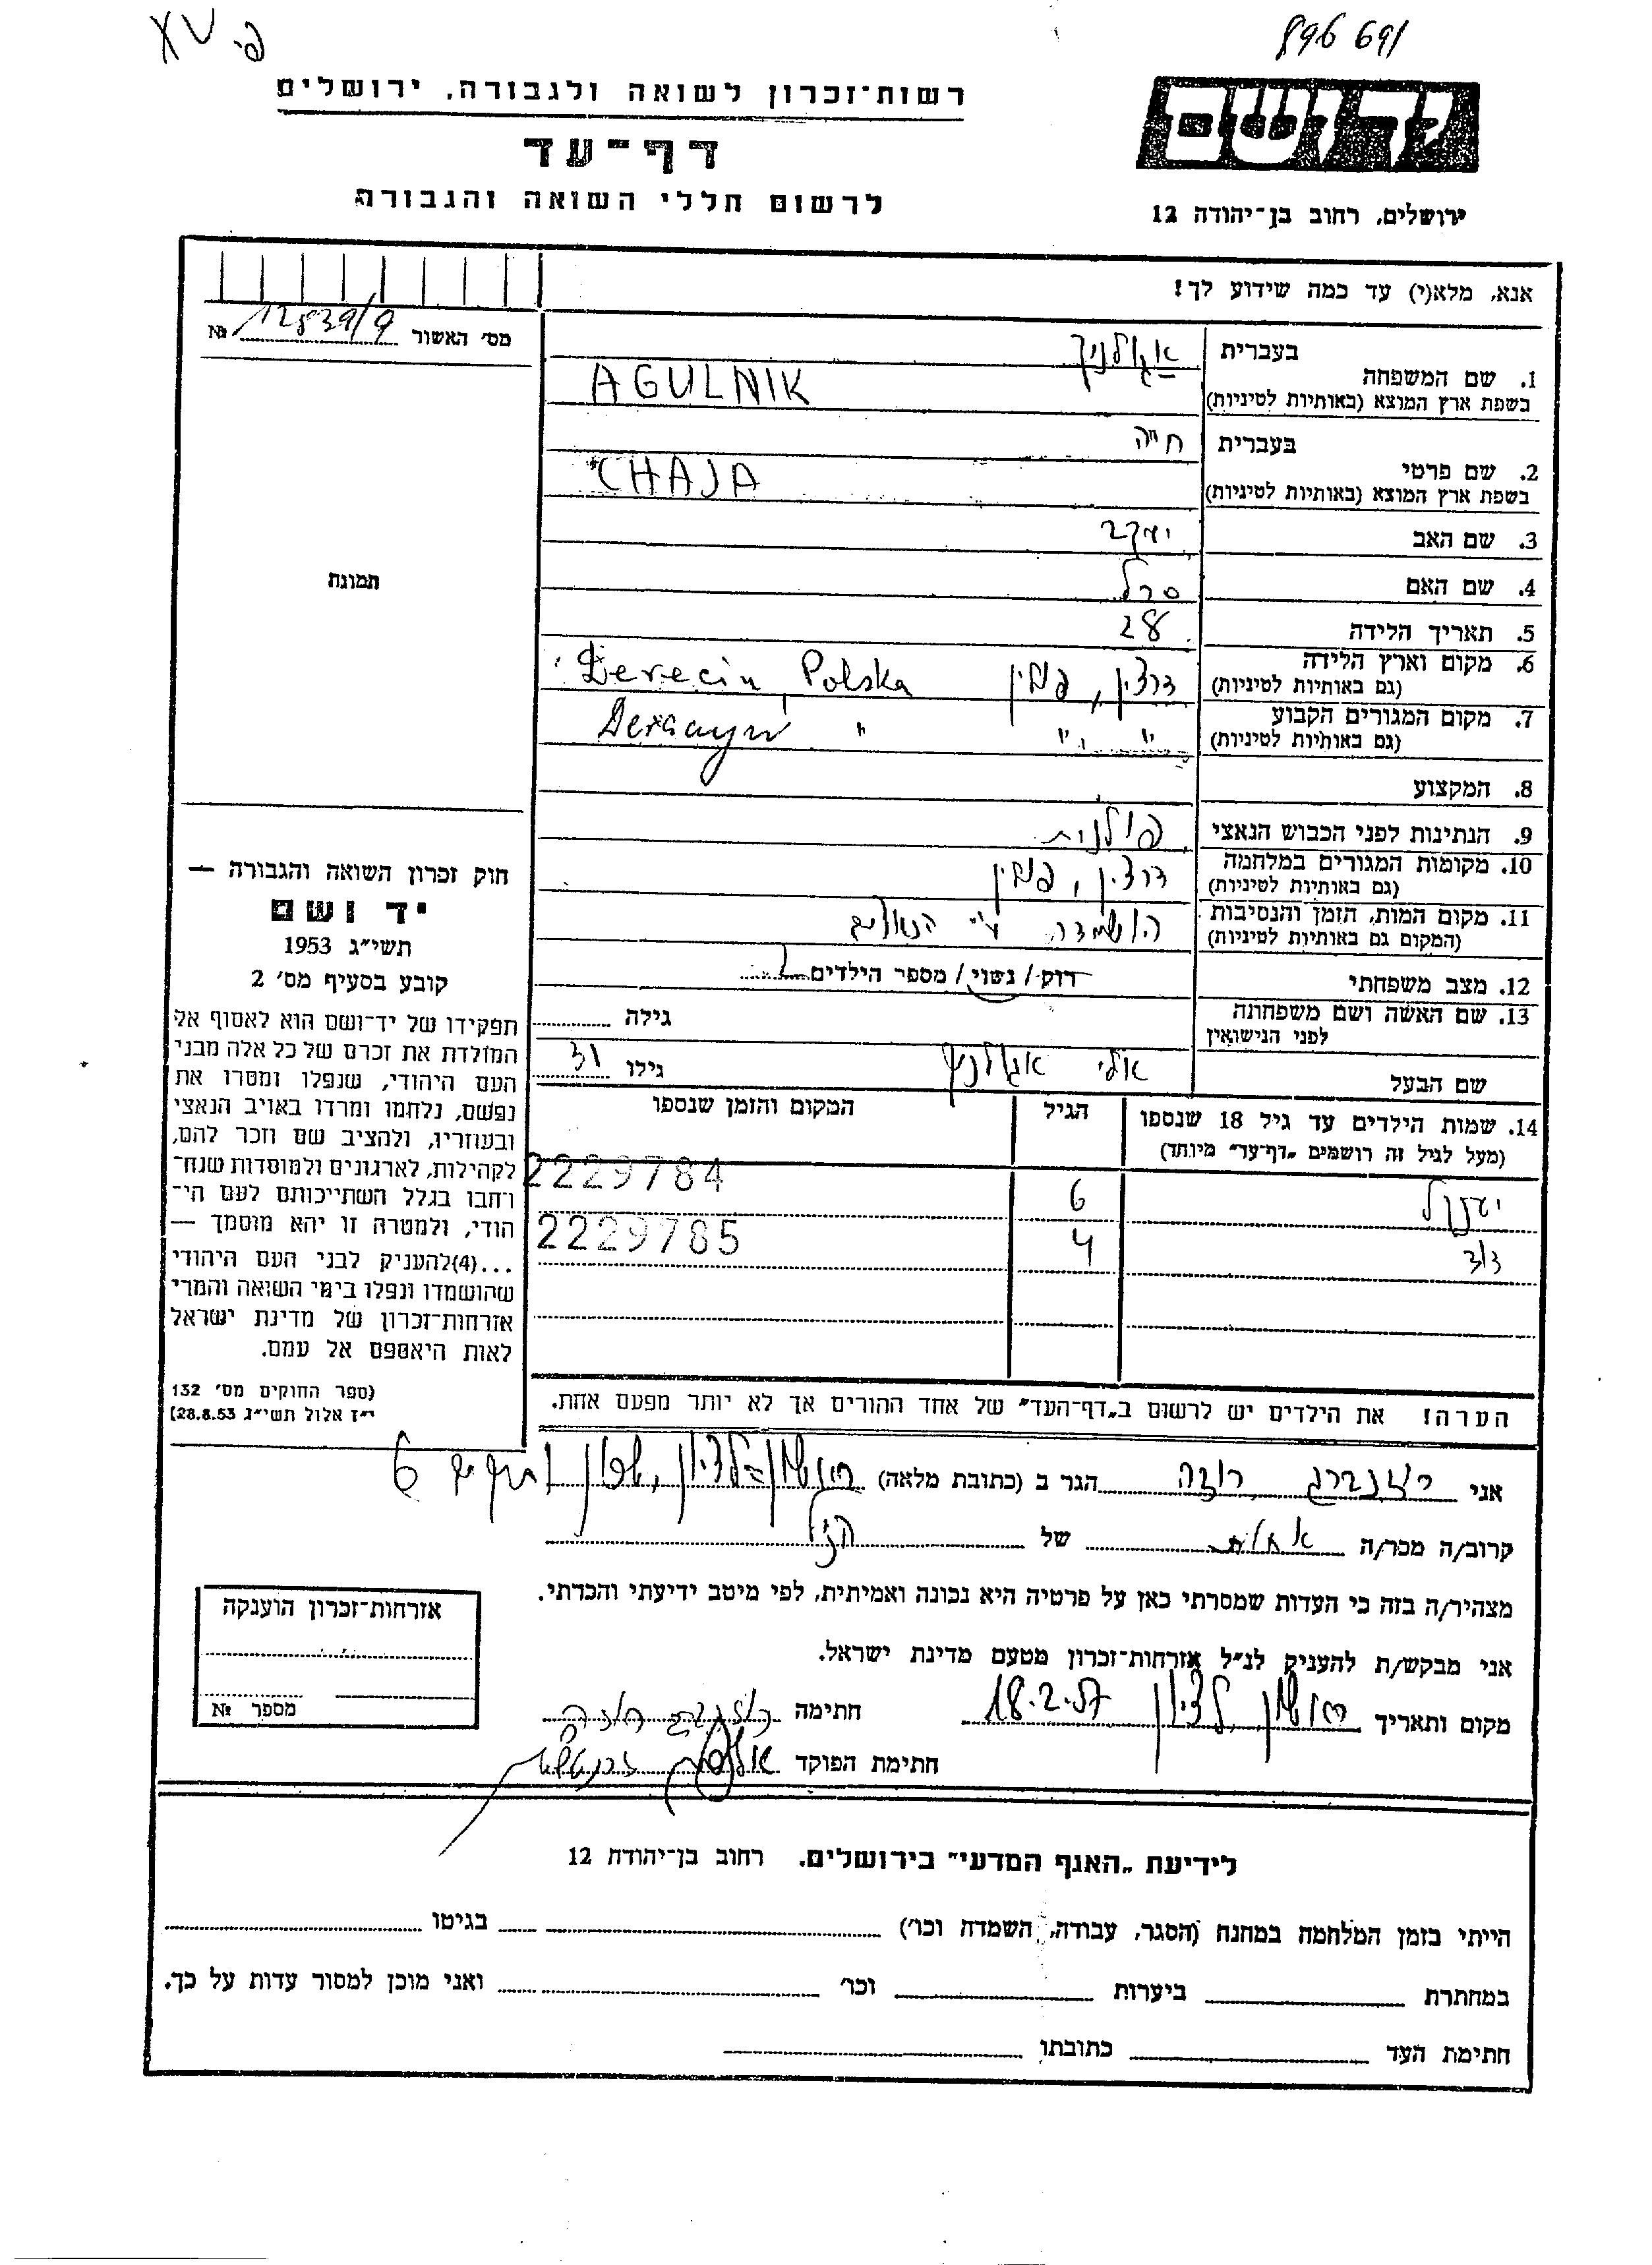 896 691
רשות־זכרון לשואה ולגבורה, ירושלים
דף־עד
לרשום חללי השואה והגבורה
יד ושם
ירושלים, רחוב בן־יהודה 12
אנא, מלא(י) עד כמה שידוע לך!
מס׳ האשור 12839/9 №
1. שם המשפחה
בעברית אגולניק
בשפת ארץ המוצא (באותיות לטיניות) AGULNIK
2. שם פרטי
בעברית חיה
בשפת ארץ המוצא (באותיות לטיניות) CHAJA
3. שם האב יעקב
4. שם האם
5. תאריך הלידה 28
6. מקום וארץ הלידה
(גם באותיות לטיניות) דרצין, פולין Derecin, Polska
7. מקום המגורים הקבוע
(גם באותיות לטיניות) " " "
8. המקצוע
9. הנתינות לפני הכבוש הנאצי פולנית
10. מקומות המגורים במלחמה
(גם באותיות לטיניות) דרצין, פולין
11. מקום המות, הזמן והנסיבות
(המקום גם באותיות לטיניות) הושמדה ע"י הנאצים
12. מצב משפחתי רוק/נשוי/מספר הילדים 2
13. שם האשה ושם משפחתה
לפני הנישואין גילה
שם הבעל אלי אגולניק גילו 31
14. שמות הילדים עד גיל 18 שנספו הגיל המקום והזמן שנספו
(מעל לגיל זה רושמים „דף־עד" מיוחד)
יענקל 6 2229784
דוד 4 2229785
הערה! את הילדים יש לרשום ב„דף־העד" של אחד ההורים אך לא יותר מפעם אחת.
תמונה
חוק זכרון השואה והגבורה —
יד ושם
תשי״ג 1953
קובע בסעיף מס׳ 2
תפקידו של יד־ושם הוא לאסוף אל
המולדת את זכרם של כל אלה מבני
העם היהודי, שנפלו ומסרו את
נפשם, נלחמו ומרדו באויב הנאצי
ובעוזריו, ולהציב שם וזכר להם,
לקהילות, לארגונים ולמוסדות שנח־
רחבו בגלל השתייכותם לעם הי־
הודי, ולמטרה זו יהא מוסמך —
...(4)להעניק לבני העם היהודי
שהושמדו ונפלו בימי השואה והמרי
אזרחות־זכרון של מדינת ישראל
לאות היאספם אל עמם.
(ספר החוקים מס׳ 132
י״ז אלול תשי״ג 28.8.53)
אני רוזנברג רוזה הגר ב (כתובת מלאה) ראשון־לציון, שכון 6
קרוב/ה מכר/ה אחות של הנ"ל
מצהיר/ה בזה כי העדות שמסרתי כאן על פרטיה היא נכונה ואמיתית, לפי מיטב ידיעתי והכרתי.
אני מבקש/ת להעניק לנ״ל אזרחות־זכרון מטעם מדינת ישראל.
מקום ותאריך ראשון לציון 18.2.57 חתימה רוזנברג רוזה
חתימת הפוקד
אזרחות־זכרון הוענקה
מספר №
לידיעת „האגף המדעי" בירושלים, רחוב בן־יהודה 12
הייתי בזמן המלחמה במחנה (הסגר, עבודה, השמדה וכו׳) בגיטו
במחתרת ביערות וכו׳ ואני מוכן למסור עדות על כך.
חתימת העד כתובתו